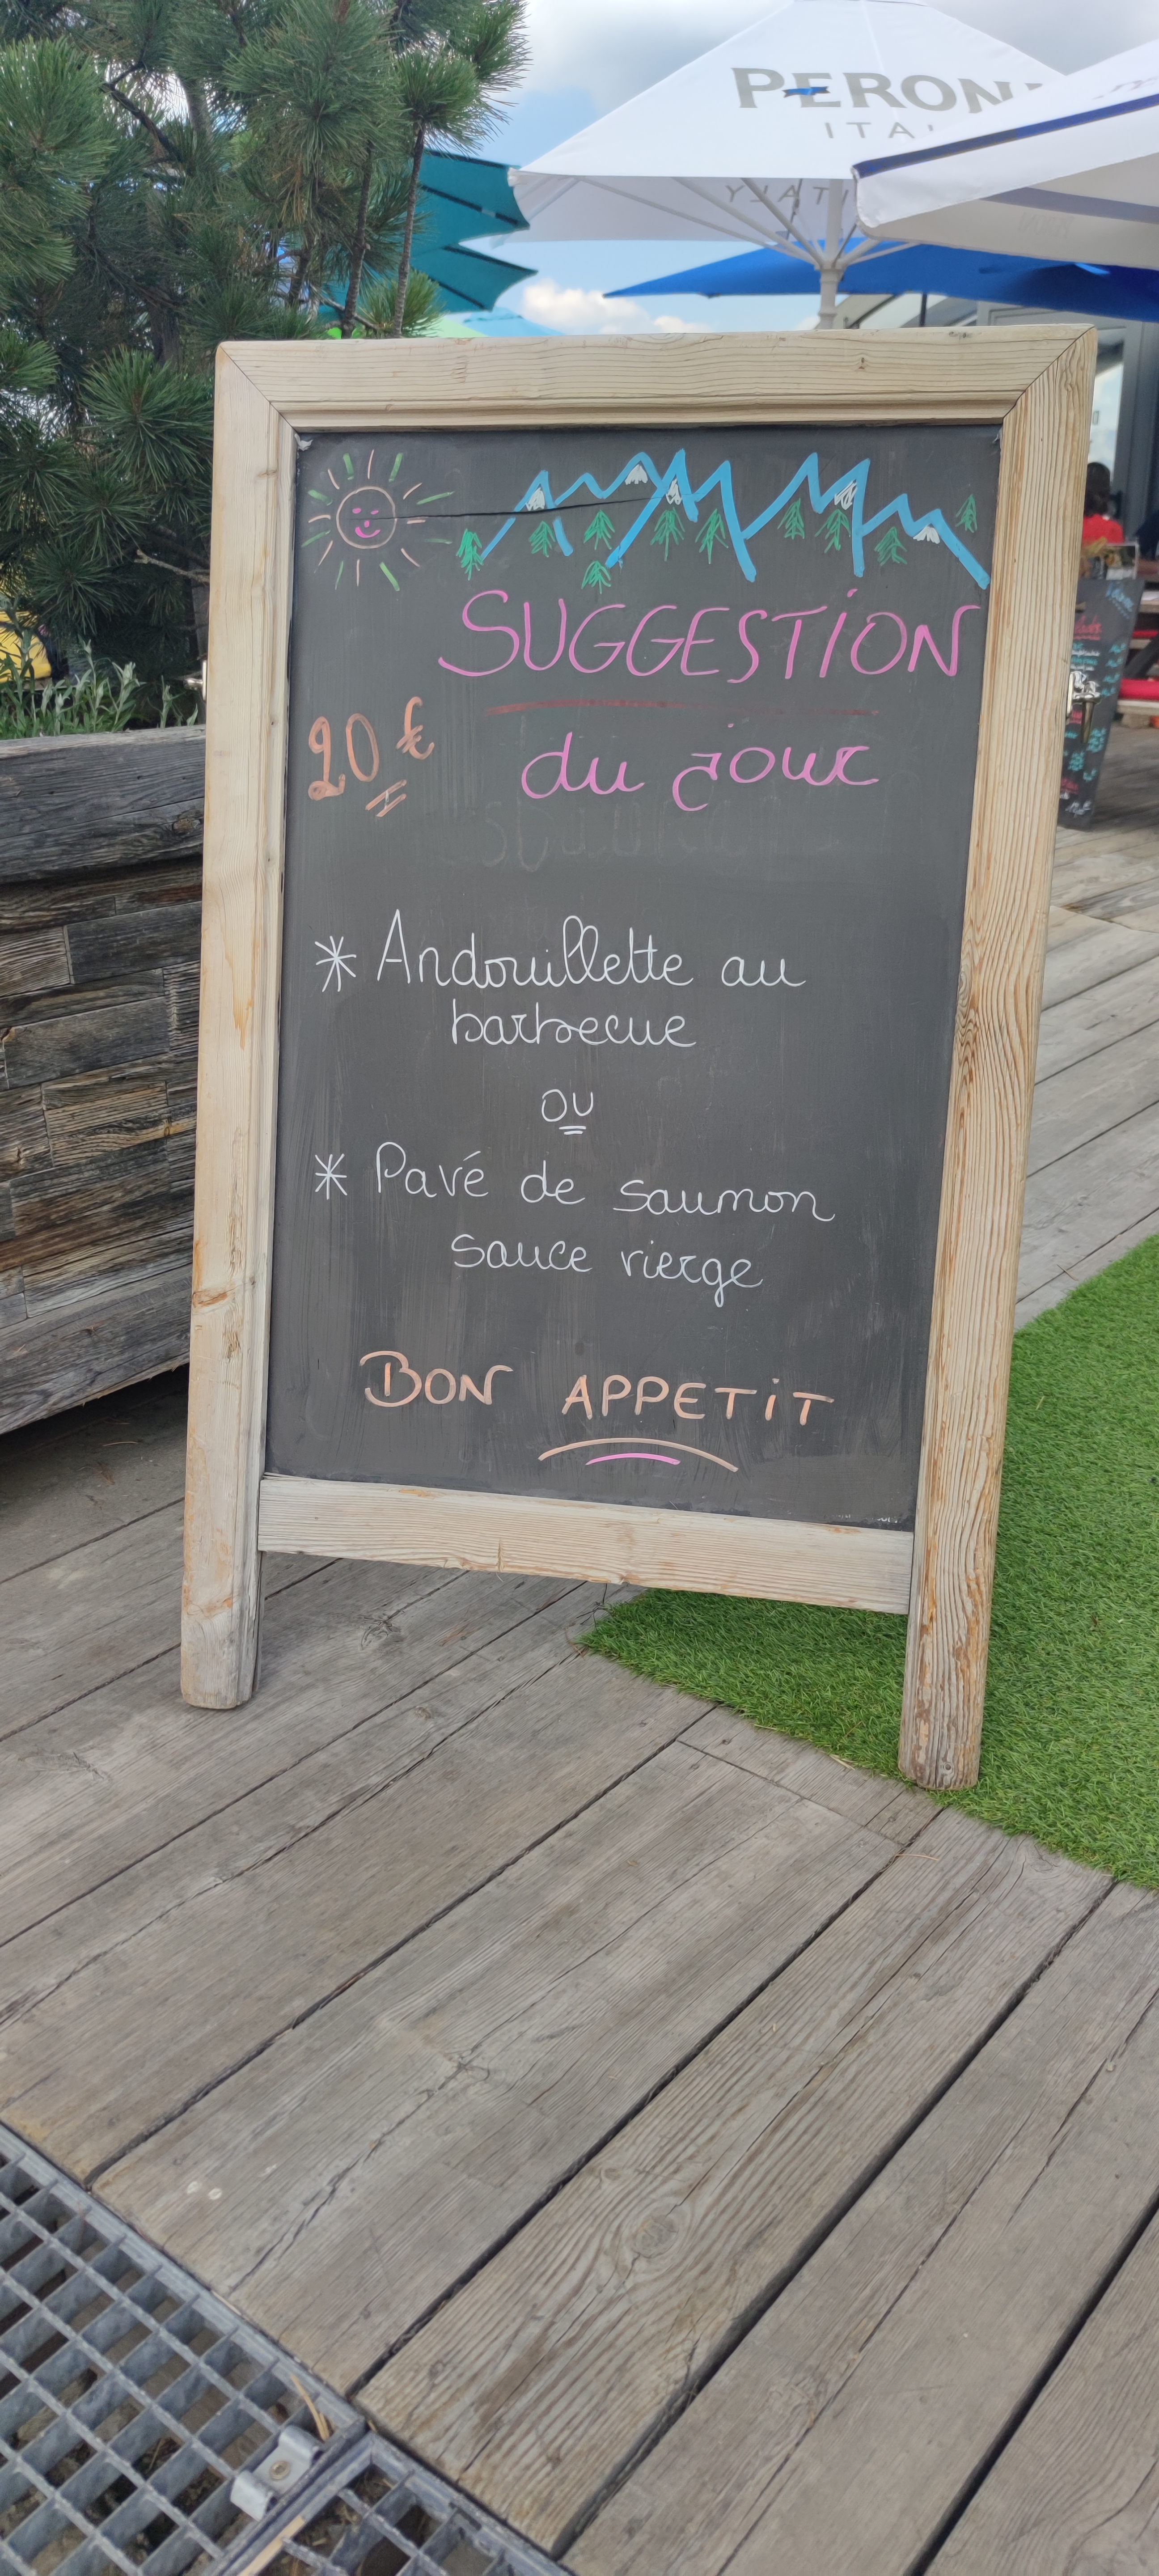 PERONI
ITALY
SUGGESTION
20 €
du jour
* Andouillette au
barbecue
ou
* Pavé de saumon
sauce vierge
BON APPETIT